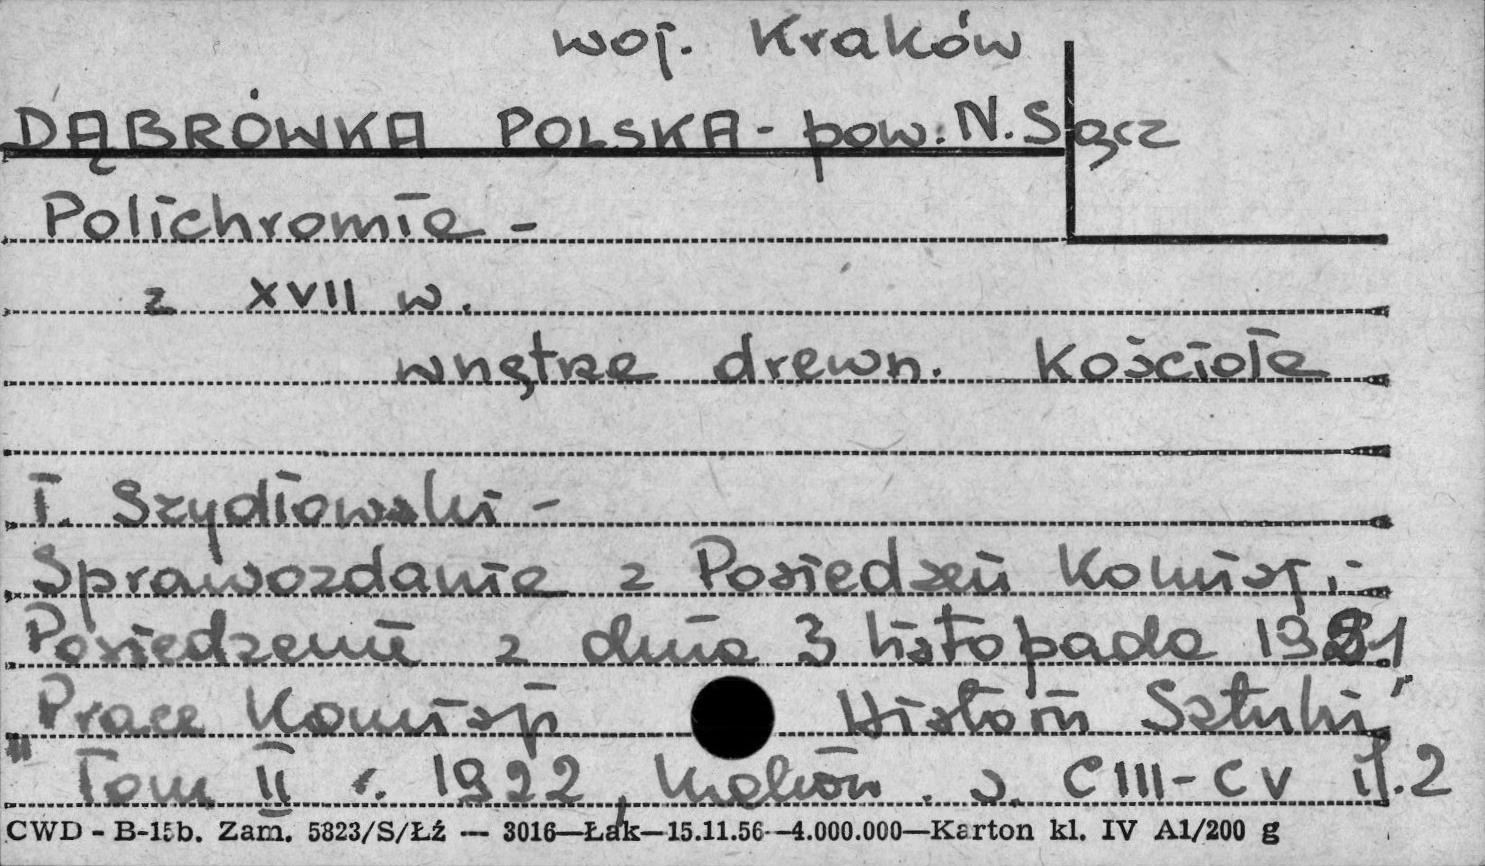 woj. Kraków
DĄBRÓWKA POLSKA - pow. N. Sącz
Polichromie -
z XVII w.
wnętrze drewn. Kościoła
T. Szydłowski -
Sprawozdanie z Posiedzeń Komisji.-
Posiedzenie z dnia 3 listopada 1921
"Prace Komisji Historii Sztuki"
Tom II r. 1922, Kraków. s. CIII-CV il. 2
CWD - B-15b. Zam. 5823/S/Łź — 3016—Łak—15.11.56—4.000.000—Karton kl. IV A1/200 g